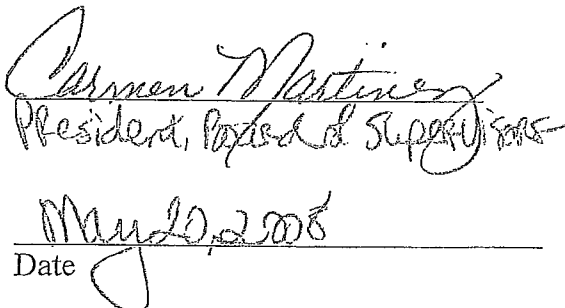 Carmen Martinez
President, Board of Supervisors
May 20, 2008
Date